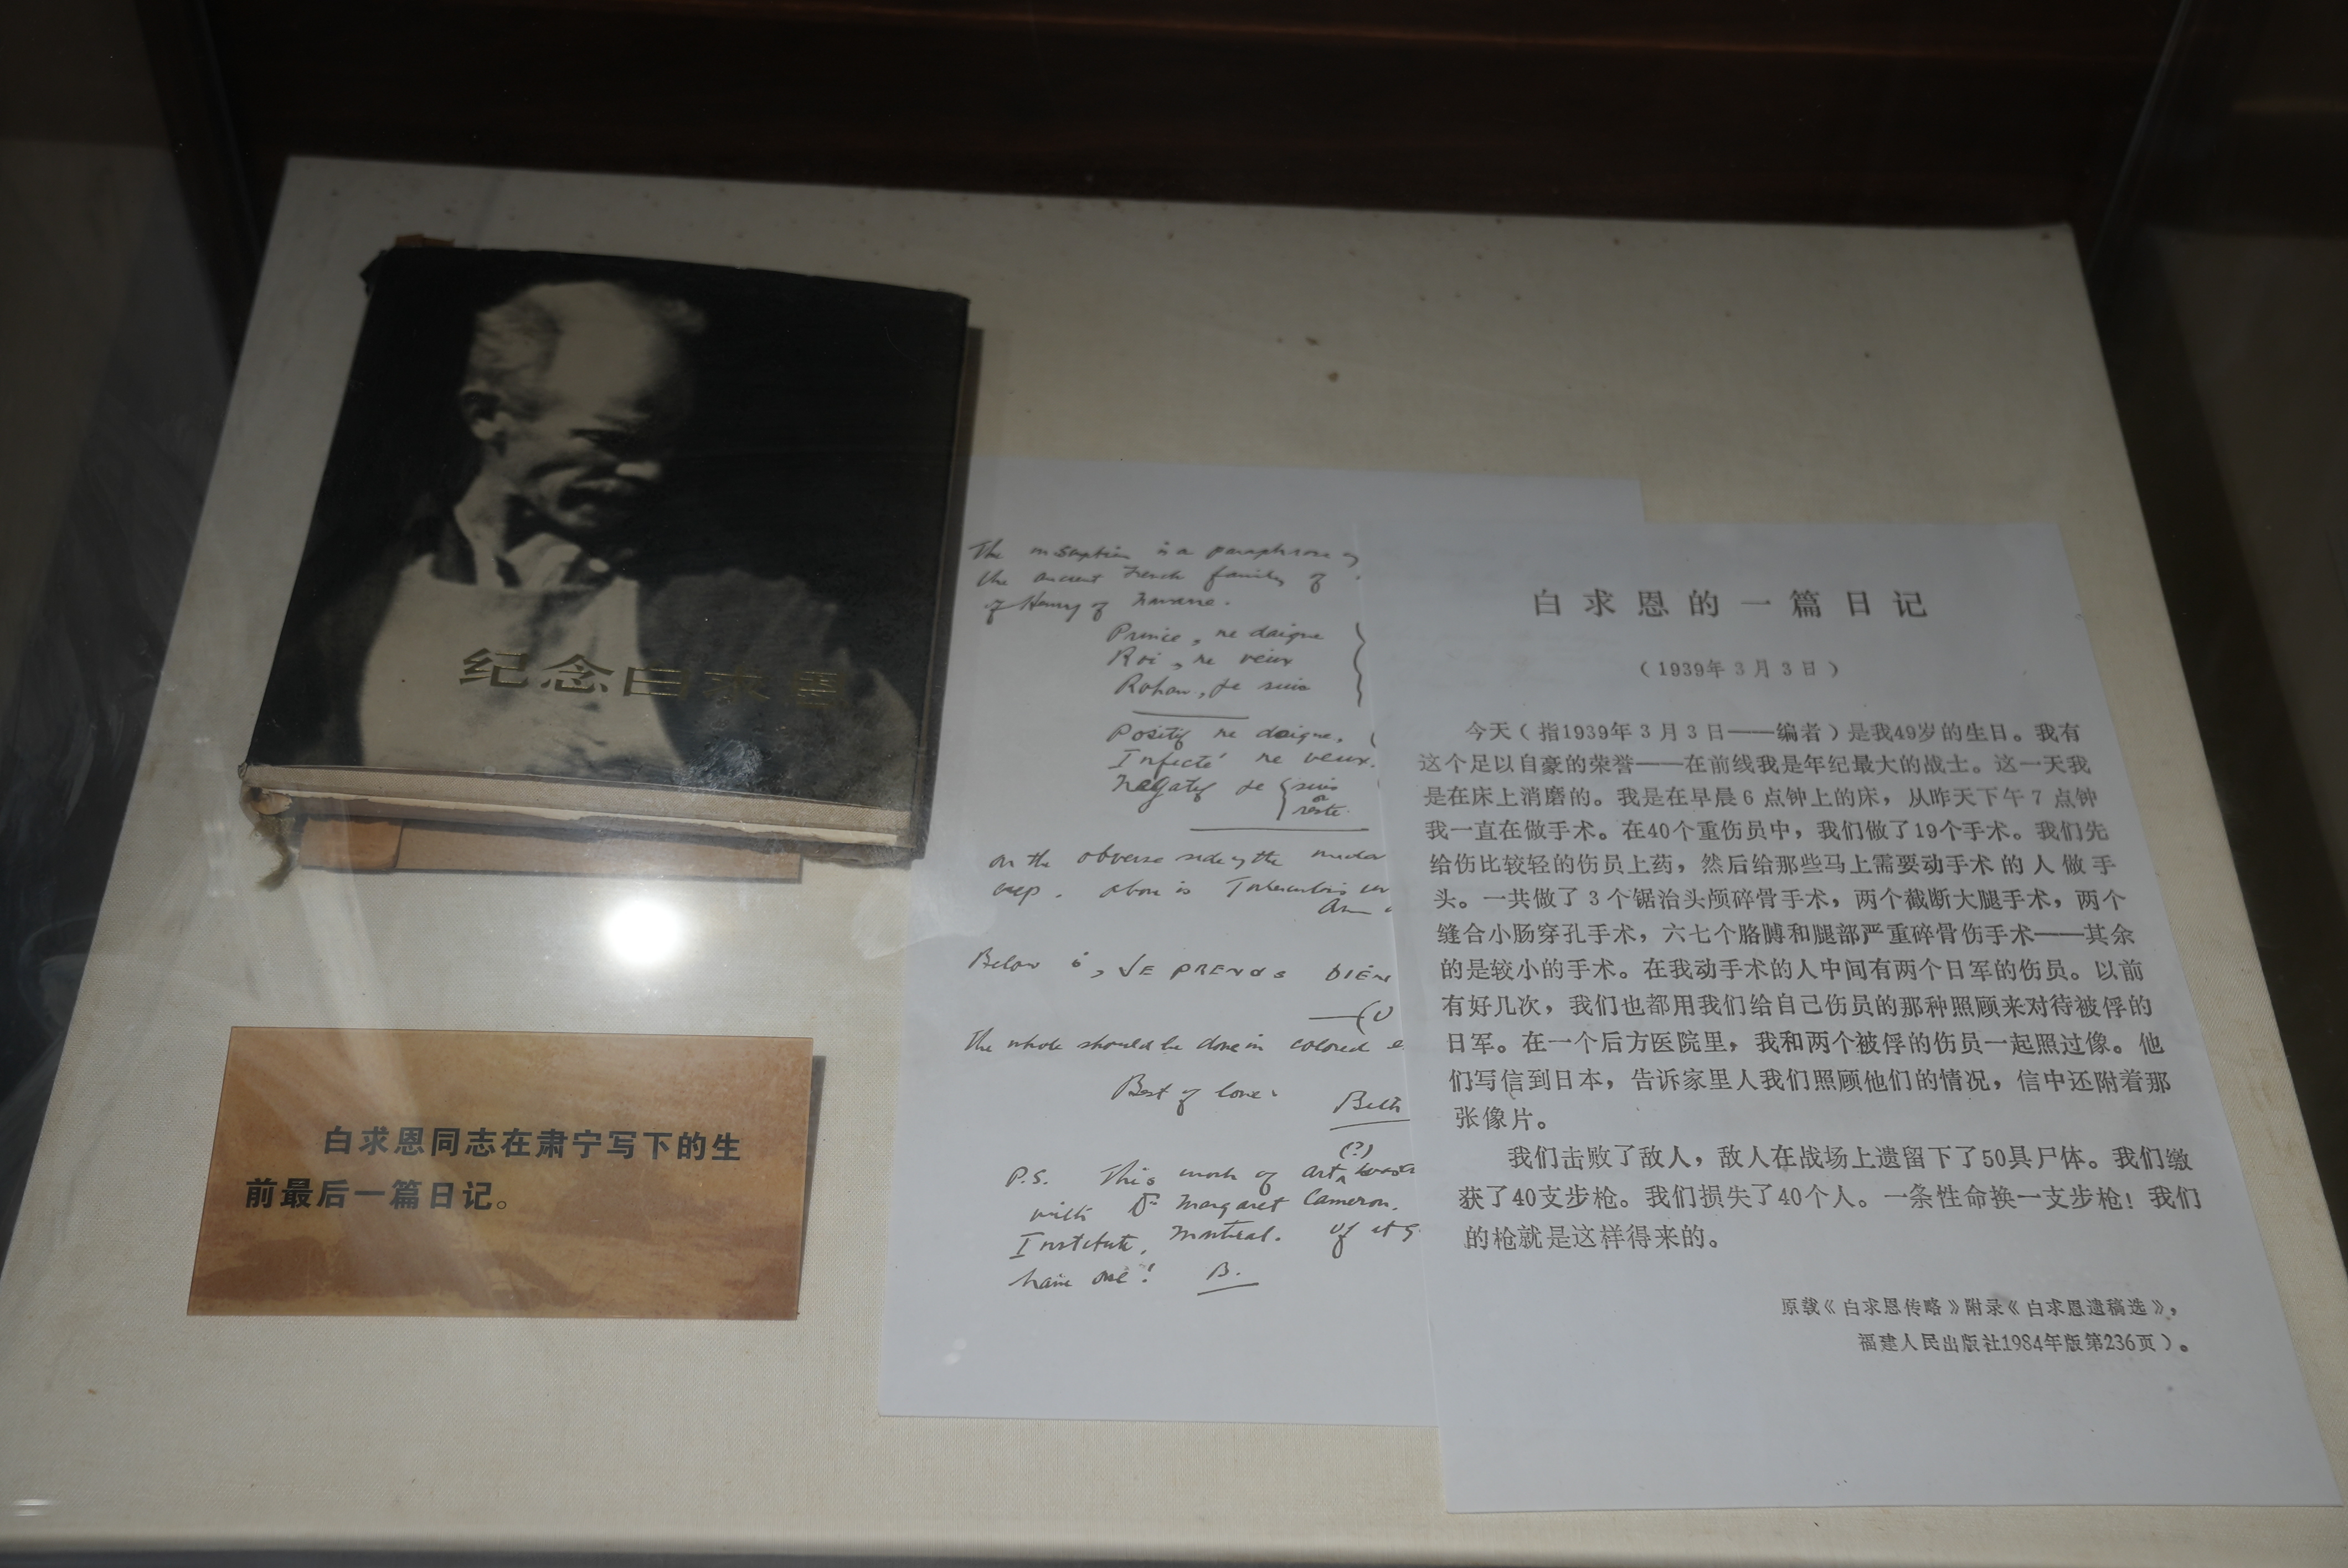 纪念白求恩
白求恩同志在肃宁写下的生
前最后一篇日记。
The inscription is a paraphrase of
the ancient French family of
of Henry of Navarre.
Prince, ne daigne
Roi, ne veux
Rohan, je suis
Positif ne daigne.
Infecté ne veux.
Negatif je suis
or
reste.
on the obverse side of the
above is
Below is, JE PRENDS BIEN
The whole should be done in colored
Best of love.
Beth
(?)
P.S. This work of art
with Dr Margaret Cameron.
Institute, Montreal.
have one! B.
白求恩的一篇日记
（1939年3月3日）
今天（指1939年3月3日——编者）是我49岁的生日。我有
这个足以自豪的荣誉——在前线我是年纪最大的战士。这一天我
是在床上消磨的。我是在早晨6点钟上的床，从昨天下午7点钟
我一直在做手术。在40个重伤员中，我们做了19个手术。我们先
给伤比较轻的伤员上药，然后给那些马上需要动手术的人做手
头。一共做了3个锯治头颅碎骨手术，两个截断大腿手术，两个
缝合小肠穿孔手术，六七个胳膊和腿部严重碎骨伤手术——其余
的是较小的手术。在我动手术的人中间有两个日军的伤员。以前
有好几次，我们也都用我们给自己伤员的那种照顾来对待被俘的
日军。在一个后方医院里，我和两个被俘的伤员一起照过像。他
们写信到日本，告诉家里人我们照顾他们的情况，信中还附着那
张像片。
我们击败了敌人，敌人在战场上遗留下了50具尸体。我们缴
获了40支步枪。我们损失了40个人。一条性命换一支步枪！我们
的枪就是这样得来的。
原载《白求恩传略》附录《白求恩遗稿选》，
福建人民出版社1984年版第236页）。